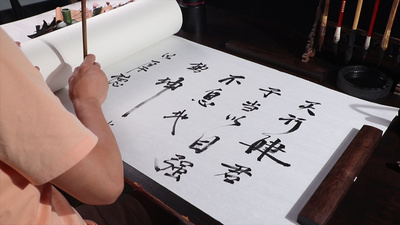 天行健君
子当以自强
不息地
势坤
以厚德